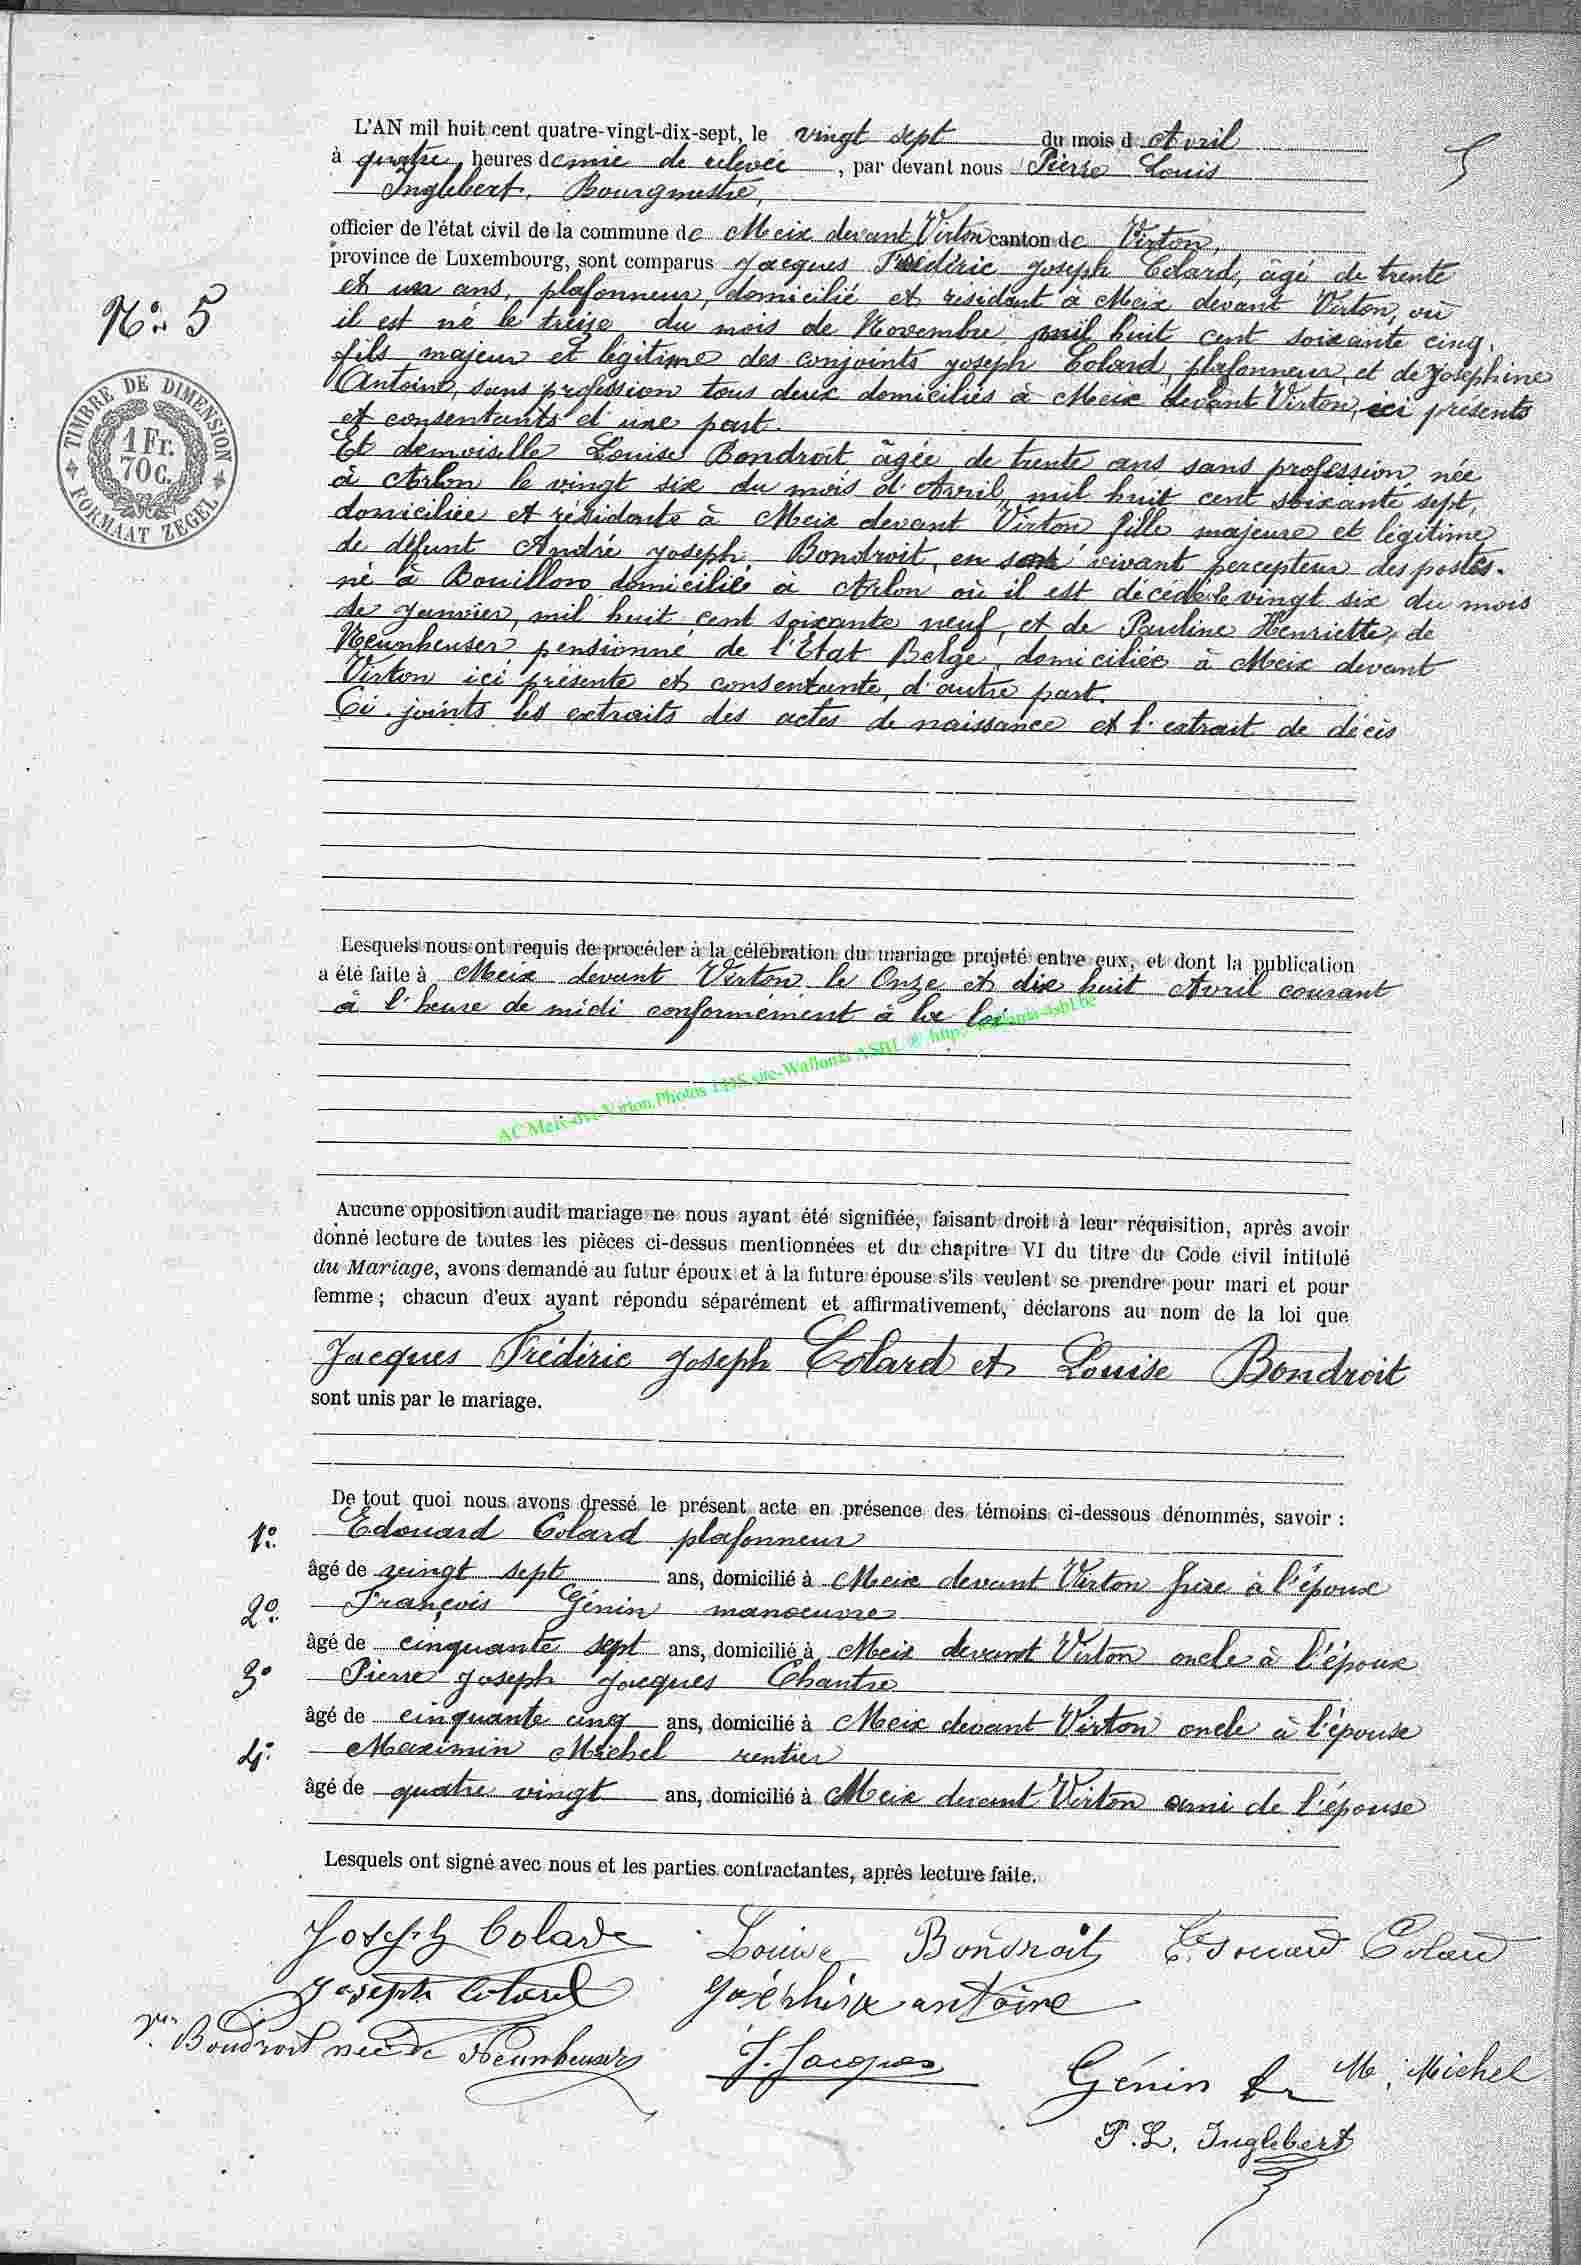 L'AN mil huit cent quatre-vingt-dix-sept, le vingt sept du mois d Avril
5
à quatre heures demie de relevée, par devant nous Pierre Louis
Inglebert, Bourgmestre,
officier de l'état civil de la commune de Meix devant Virton canton de Virton,
province de Luxembourg, sont comparus Jacques Frédéric Joseph Colard, âgé de trente
et un ans, plafonneur, domicilié et résidant à Meix devant Virton, où
il est né le treize du mois de Novembre mil huit cent soixante cinq,
N° 5
fils majeur et légitime des conjoints Joseph Colard, plafonneur, et de Joséphine
Antoine, sans profession tous deux domiciliés à Meix devant Virton, ici présents
et consentants d'une part.
TIMBRE DE DIMENSION
1 Fr.
70 C.
FORMAAT ZEGEL
Et demoiselle Louise Bondroit âgée de trente ans sans profession, née
à Arlon le vingt six du mois d'Avril mil huit cent soixante sept,
domiciliée et résidante à Meix devant Virton fille majeure et légitime
de défunt André Joseph Bondroit, en son vivant percepteur des postes.
né à Bouillon domicilié à Arlon où il est décédé le vingt six du mois
de Janvier, mil huit cent soixante neuf, et de Pauline Henriette, de
Neunheuser pensionné de l'Etat Belge, domiciliée à Meix devant
Virton ici présente et consentante, d'autre part.
Ci-joints les extraits des actes de naissance et l'extrait de décès
Lesquels nous ont requis de procéder à la célébration du mariage projeté entre eux, et dont la publication
a été faite à Meix devant Virton le Onze et dix huit Avril courant
à l'heure de midi conformément à la loi
AC Meix-dvt-Virton,Photos 1415,site-Wallonia ASBL @ http://wallonia-asbl.be
Aucune opposition audit mariage ne nous ayant été signifiée, faisant droit à leur réquisition, après avoir
donné lecture de toutes les pièces ci-dessus mentionnées et du chapitre VI du titre du Code civil intitulé
du Mariage, avons demandé au futur époux et à la future épouse s'ils veulent se prendre pour mari et pour
femme ; chacun d'eux ayant répondu séparément et affirmativement, déclarons au nom de la loi que
Jacques Frédéric Joseph Colard et Louise Bondroit
sont unis par le mariage.
De tout quoi nous avons dressé le présent acte en présence des témoins ci-dessous dénommés, savoir :
1° Edouard Colard plafonneur
âgé de vingt sept ans, domicilié à Meix devant Virton frère à l'époux
2° François Génin manoeuvre
âgé de cinquante sept ans, domicilié à Meix devant Virton oncle à l'époux
3° Pierre Joseph Jacques Chantre
âgé de cinquante cinq ans, domicilié à Meix devant Virton oncle à l'épouse
4° Maximin Michel rentier
âgé de quatre vingt ans, domicilié à Meix devant Virton ami de l'épouse
Lesquels ont signé avec nous et les parties contractantes, après lecture faite.
Joseph Colard Louise Bondroit Edouard Colard
Joseph Colard Joséphine antoine
Bondroit née de Neunheuser J. Jacques Génin fr M. Michel
P. L. Inglebert